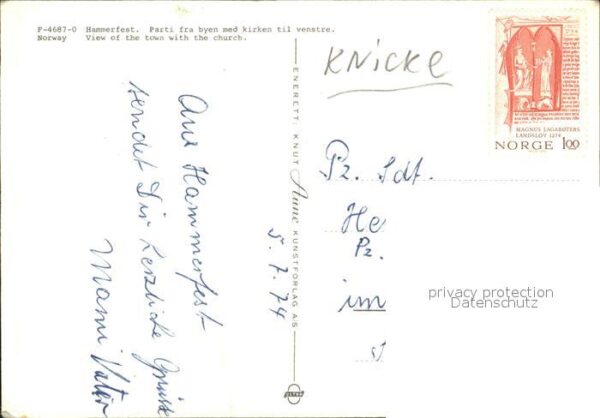 F-4687-0 Hammerfest. Parti fra byen med kirken til venstre.
Norway View of the town with the church.
KNICKE
Aus Hammerfest
sendet Dir herzliche Grüße
Mami Vater
5.7.74
ENERETT: KNUT Aune KUNSTFORLAG A/S
MAGNUS LAGABØTERS
LANDSLOV 1274
NORGE 100
Pz. Sdt.
He
Pz.
im
privacy protection
Datenschutz